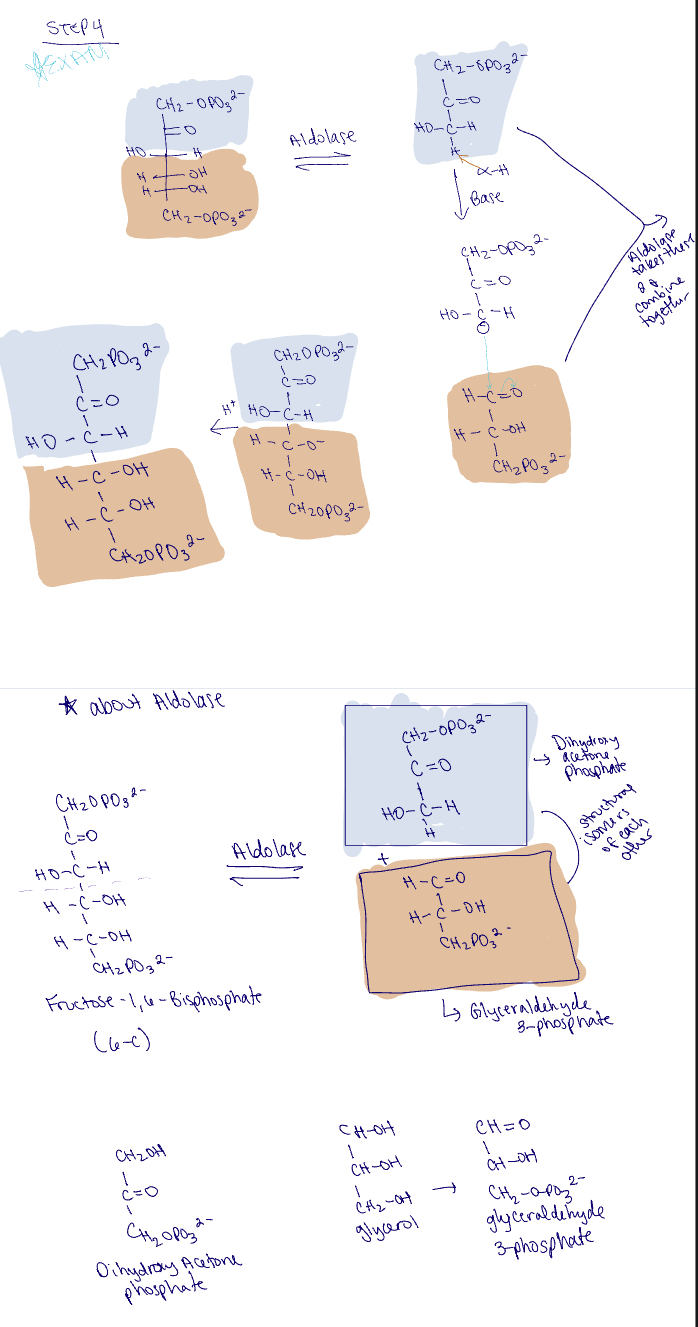 STEP 4
☆EXAM
CH₂-OPO₃²⁻
=O
HO H
H OH
H OH
CH₂-OPO₃²⁻
Aldolase
CH₂-OPO₃²⁻
C=O
HO-C-H
H
α-H
Base
CH₂-OPO₃²⁻
C=O
HO-C-H
H-C=O
H-C-OH
CH₂PO₃²⁻
Aldolase
takes these
2 &
combine
together
CH₂OPO₃²⁻
C=O
HO-C-H
H-C-O⁻
H-C-OH
CH₂OPO₃²⁻
H⁺
CH₂PO₃²⁻
C=O
HO-C-H
H-C-OH
H-C-OH
CH₂OPO₃²⁻
★ about Aldolase
CH₂OPO₃²⁻
C=O
HO-C-H
H-C-OH
H-C-OH
CH₂PO₃²⁻
Fructose-1,6-Bisphosphate
(6-C)
Aldolase
CH₂-OPO₃²⁻
C=O
HO-C-H
H
→ Dihydroxy
acetone
phosphate
+
H-C=O
H-C-OH
CH₂PO₃²⁻
structural
isomers
of each
other
↳ Glyceraldehyde
3-phosphate
CH₂OH
C=O
CH₂OPO₃²⁻
Dihydroxy Acetone
phosphate
CH-OH
CH-OH
CH₂-OH
glycerol
→
CH=O
CH-OH
CH₂-OPO₃²⁻
glyceraldehyde
3-phosphate